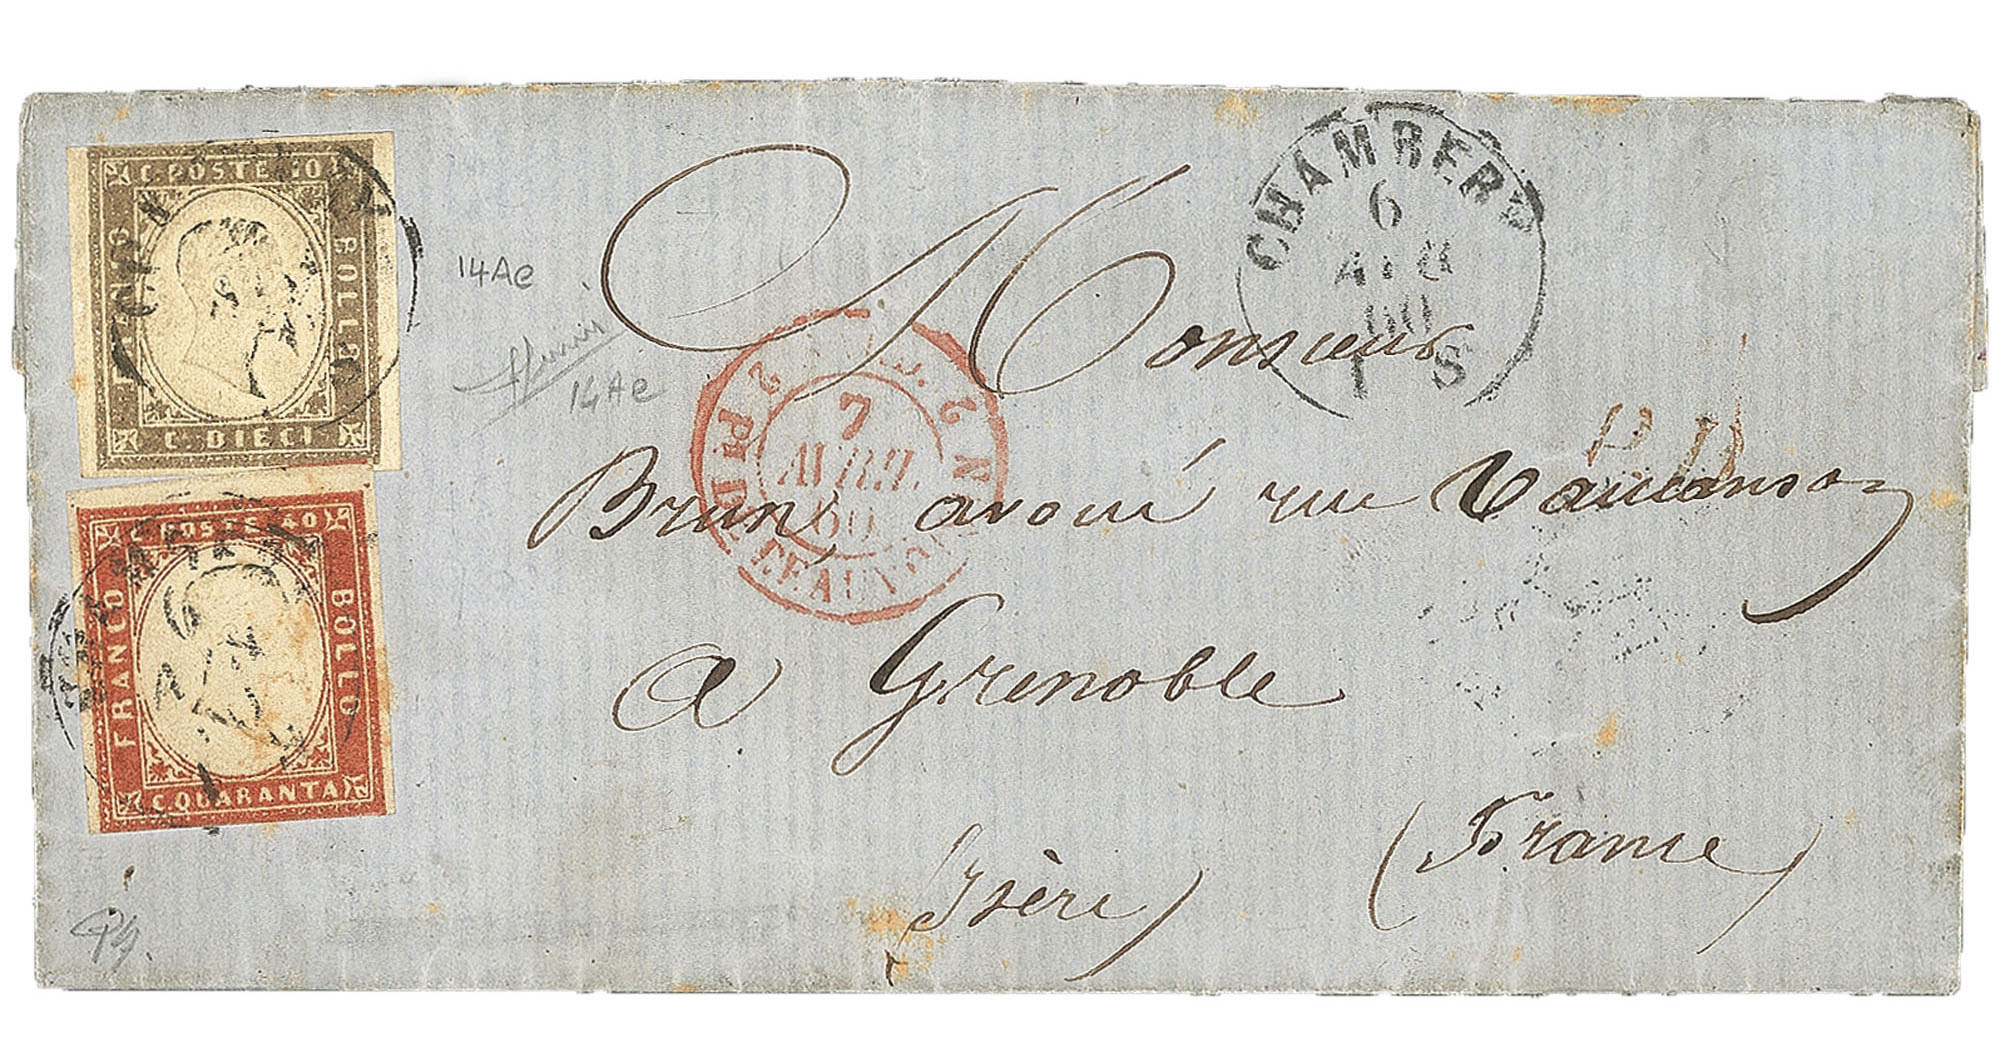 C. POSTE 10
FRANCO
BOLLO
C. DIECI
C. POSTE 40
FRANCO
BOLLO
C. QUARANTA
14Ae
14Ae
CHAMBERY
6
60
1 S
7
AVRIL
60
PT DE BEAUVOISIN
P.D.
Monsieur
Brun, avoué rue Vaucanson
a Grenoble
Isère
(France)